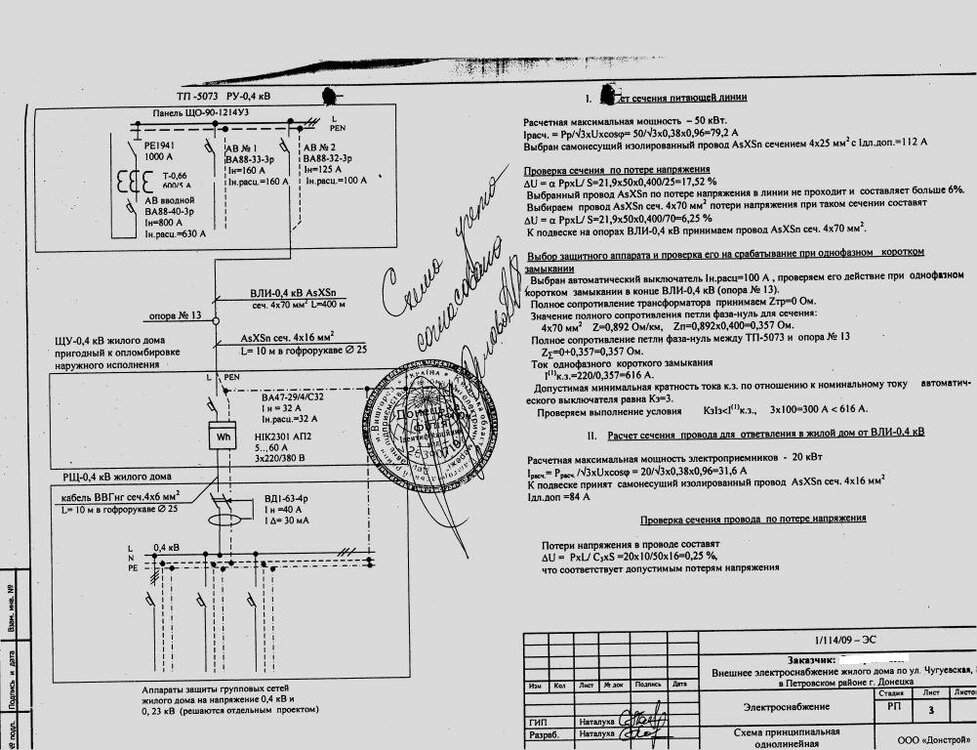 ТП -5073 РУ-0,4 кВ
Панель ЩО-90-1214УЗ
L
PEN
РЕ1941
1000 А
Т-0,66
600/5 А
АВ вводной
ВА88-40-3р
Iн=800 А
Iн.расц.=630 А
АВ № 1
ВА88-33-3р
Iн=160 А
Iн.расц.=160 А
АВ № 2
ВА88-32-3р
Iн=125 А
Iн.расц.=100 А
ВЛИ-0,4 кВ AsXSn
сеч. 4х70 мм² L=400 м
опора № 13
AsXSn сеч. 4х16 мм²
L= 10 м в гофрорукаве ∅ 25
ЩУ-0,4 кВ жилого дома
пригодный к опломбировке
наружного исполнения
L PEN
ВА47-29/4/С32
I н = 32 А
I н.расц.=32 А
Wh
НІК2301 АП2
5...60 А
3х220/380 В
РЩ-0,4 кВ жилого дома
кабель ВВГнг сеч.4х6 мм²
L= 10 м в гофрорукаве ∅ 25
ВД1-63-4р
I н =40 А
I Δ= 30 мА
L 0,4 кВ
N
PE
Аппараты защиты групповых сетей
жилого дома на напряжение 0,4 кВ и
0, 23 кВ (решаются отдельным проектом)
Схема
согласовано
УКРАЇНА
Донецька
філія
Ідентифікаційний
код
I. ет сечения питающей линии
Расчетная максимальная мощность – 50 кВт.
Iрасч. = Рр/√3хUхcosφ= 50/√3х0,38х0,96=79,2 А
Выбран самонесущий изолированный провод AsXSn сечением 4х25 мм² с Iдл.доп.=112 А
Проверка сечения по потере напряжения
ΔU = α РрхL/ S=21,9х50х0,400/25=17,52 %
Выбранный провод AsXSn по потере напряжения в линии не проходит и составляет больше 6%.
Выбираем провод AsXSn сеч. 4х70 мм² потери напряжения при таком сечении составят
ΔU = α РрхL/ S=21,9х50х0,400/70=6,25 %
К подвеске на опорах ВЛИ-0,4 кВ принимаем провод AsXSn сеч. 4х70 мм².
Выбор защитного аппарата и проверка его на срабатывание при однофазном коротком
замыкании
Выбран автоматический выключатель Iн.расц=100 А , проверяем его действие при однофазном
коротком замыкании в конце ВЛИ-0,4 кВ (опора № 13).
Полное сопротивление трансформатора принимаем Zтр=0 Ом.
Значение полного сопротивления петли фаза-нуль для сечения:
4х70 мм² Z=0,892 Ом/км, Zп=0,892х0,400=0,357 Ом.
Полное сопротивление петли фаза-нуль между ТП-5073 и опора № 13
Z∑=0+0,357=0,357 Ом.
Ток однофазного короткого замыкания
I⁽¹⁾к.з.=220/0,357=616 А.
Допустимая минимальная кратность тока к.з. по отношению к номинальному току автомати-
ческого выключателя равна Кз=3.
Проверяем выполнение условия КзIз<I⁽¹⁾к.з., 3х100=300 А < 616 А.
II. Расчет сечения провода для ответвления в жилой дом от ВЛИ-0,4 кВ
Расчетная максимальная мощность электроприемников - 20 кВт
Iрасч.= Ррасч. /√3хUхcosφ = 20/√3х0,38х0,96=31,6 А
К подвеске принят самонесущий изолированный провод AsXSn сеч. 4х16 мм²
Iдл.доп =84 А
Проверка сечения провода по потере напряжения
Потери напряжения в проводе составят
ΔU = РхL/ С₃хS =20х10/50х16=0,25 %,
что соответствует допустимым потерям напряжения
1/114/09 – ЭС
Заказчик:
Внешнее электроснабжение жилого дома по ул. Чугуевская,
в Петровском районе г. Донецка
Изм Кол Лист № док Подпись Дата
Электроснабжение
Стадия Лист
РП 3
ГИП Наталуха
Разраб. Наталуха
Схема принципиальная
однолинейная
ООО «Донстрой»
Взам. инв. №
Подпись и дата
№ подл.